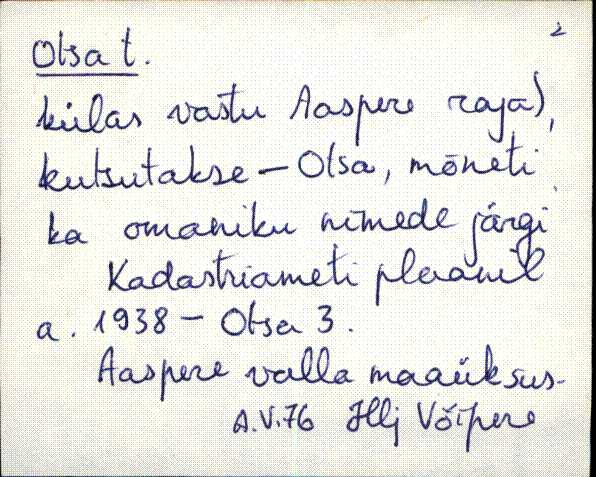 2
Otsa t.
külas vastu Aaspere raja),
kutsutakse - Otsa, mõneti
ka omaniku nimede järgi
Kadastriameti plaanil
a. 1938 - Otsa 3.
Aaspere valla maaüksus-
A.V.76 Illj Võipere